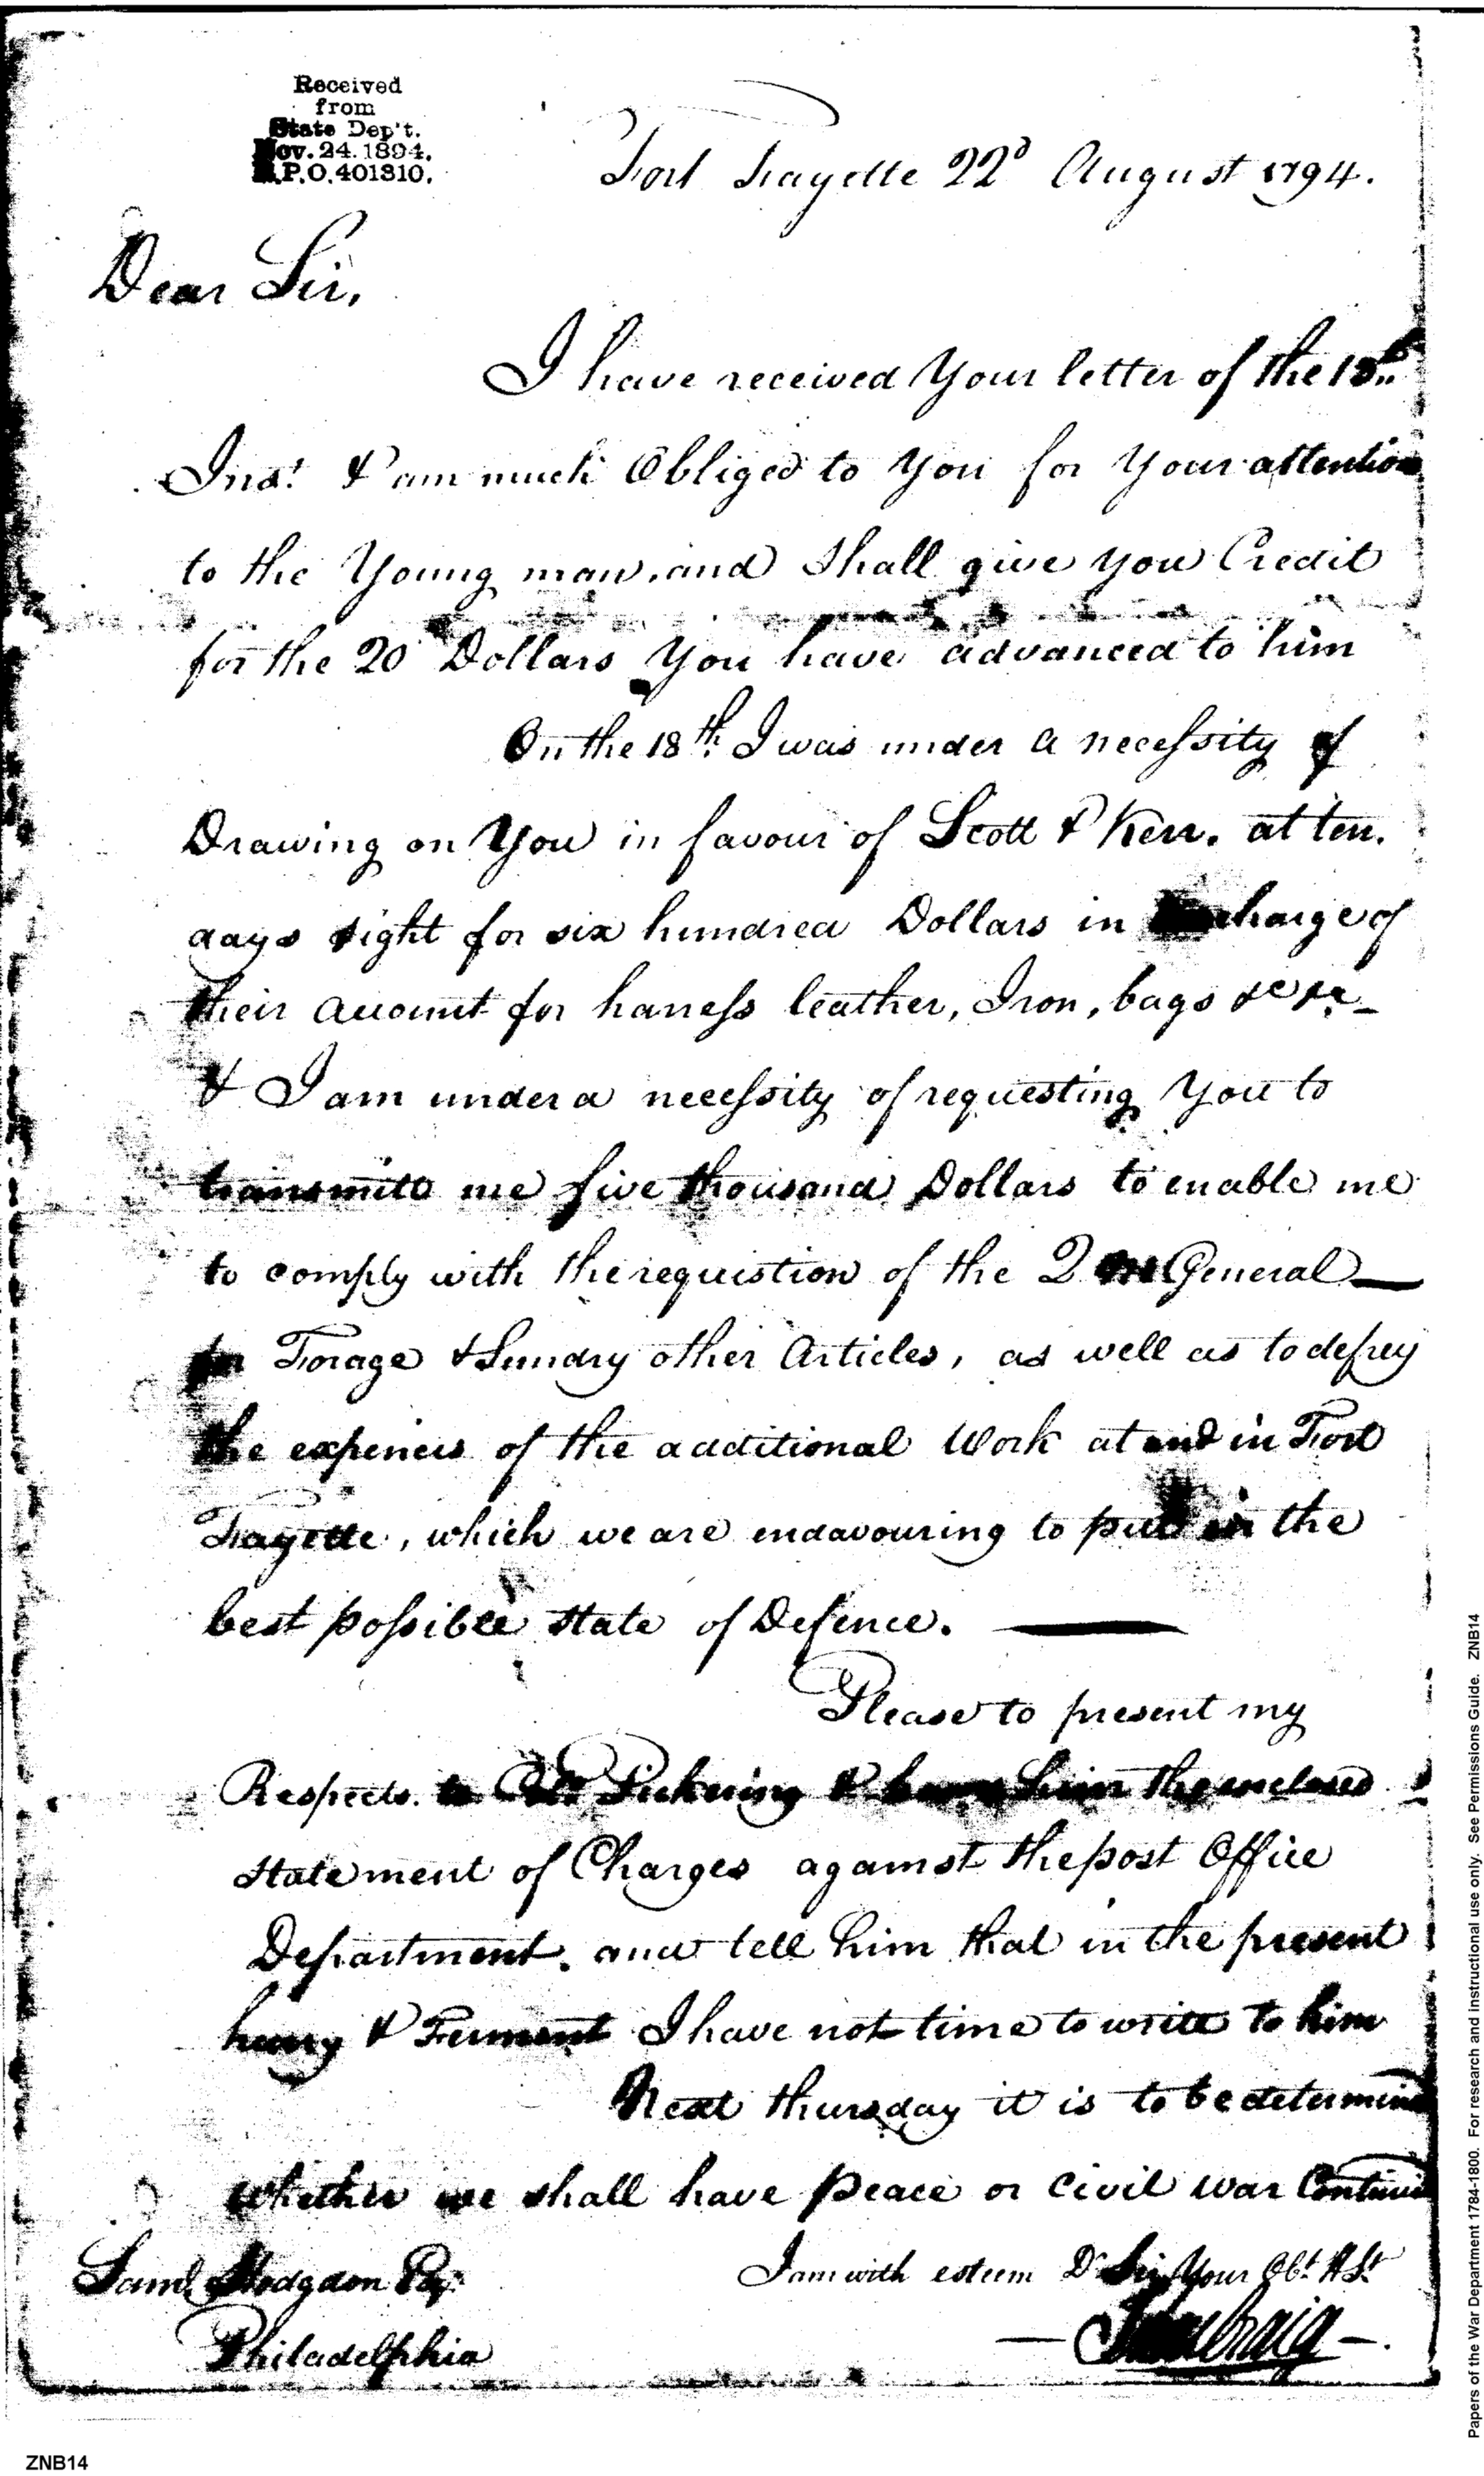 Received
from
State Dep't.
Nov. 24. 1894.
R.P.O. 401310.
Fort Fayette 22d August 1794.
Dear Sir,
I have received Your letter of the
Inst. & am much Obliged to You for Your attention
to the Young man, and shall give you Credit
for the 20 Dollars You have advanced to him
On the 18th. I was under a necessity of
Drawing on You in favour of Scott & Kerr. at ten.
days sight for six hundred Dollars in
their account for harness leather, Iron, bags &c &c -
& I am under a necessity of requesting You to
transmitt me five thousand Dollars to enable me
to comply with the requistion of the Q General
for Forage & Sundry other Articles, as well as to defrey
the expences of the additional Work at and in Fort
Fayette, which we are endavouring to put in the
best possible state of Defence.
Please to present my
Respects. to Colo Pickering & him the enclosed
statement of Charges against the post Office
Department. and tell him that in the present
hurry & Ferment I have not time to write to him
Next thursday it is to be determined
whether we shall have peace or Civil war
I am with esteem Dr Sir Your Obt. H St
Saml. Hodgdon
Philadelphia
Papers of the War Department 1784-1800. For research and instructional use only. See Permissions Guide. ZNB14
ZNB14